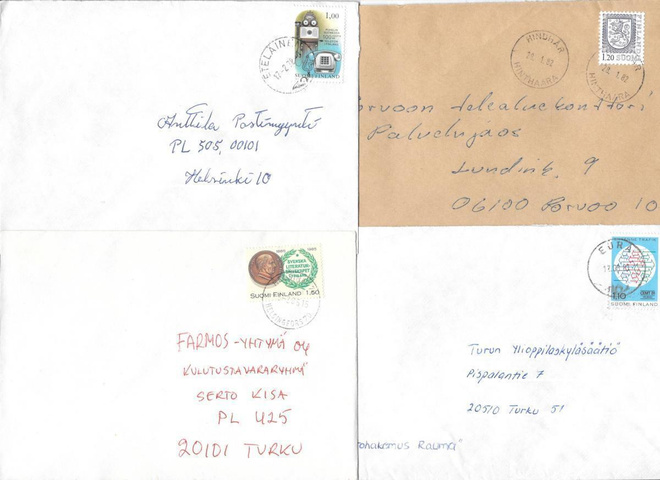 1,00
SUOMI FINLAND
Anttila Postimyynti
PL 505, 00101
Helsinki 10
HINDHÅR
26.1.82
HINTHAARA
1.20 SUOMI
HINTHAARA
Porvoon telealuekonttori
Palvelujaos
Lundink. 9
06100 Porvoo 10
SVENSKA
LITTERATUR
SUOMI FINLAND 1.50
HELSINGFORS
FARMOS-YHTYMÄ OY
KULUTUSTAVARARYHMÄ
SERTO KISA
PL 425
20101 TURKU
EURA
1.10
SUOMI FINLAND
Turun Ylioppilaskyläsäätiö
Pispalantie 7
20510 Turku 51
ohakemus Rauma"